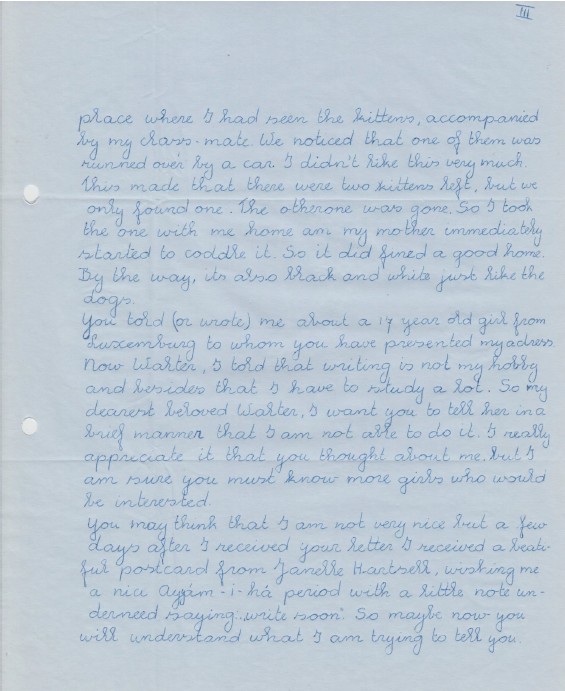 III
place where I had seen the kittens, accompanied
by my class-mate. We noticed that one of them was
runned over by a car. I didn't like this very much.
This made that there were two kittens left, but we
only found one. The otherone was gone. So I took
the one with me home am my mother immediately
started to coddle it. So it did fined a good home.
By the way, its also black and white just like the
dogs.
You told (or wrote) me about a 17 year old girl from
Luxemburg to whom you have presented my adress
Now Walter, I told that writing is not my hobby
and besides that I have to study a lot. So my
dearest beloved Walter, I want you to tell her in a
brief manner that I am not able to do it. I really
appreciate it that you thought about me, but I
am sure you must know more girls who would
be interested.
You may think that I am not very nice but a few
days after I received your letter I received a beati-
ful postcard from Janelle Hartsell, wishing me
a nice Ayyám-i-há period with a little note un-
derneed saying „write soon". So maybe now you
will understand what I am trying to tell you.